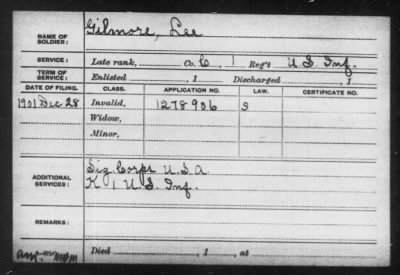 NAME OF SOLDIER: Gilmore, Lee
SERVICE: Late rank, Co. C, 1 Reg't U.S. Inf.
TERM OF SERVICE: Enlisted , 1 Discharged , 1
DATE OF FILING. CLASS. APPLICATION NO. LAW. CERTIFICATE NO.
1901 Dec 28 Invalid, 1278906 S
Widow,
Minor,
ADDITIONAL SERVICES: Sig. Corps U.S.A.
K, 1 U.S. Inf.
REMARKS:
Died , 1 , at